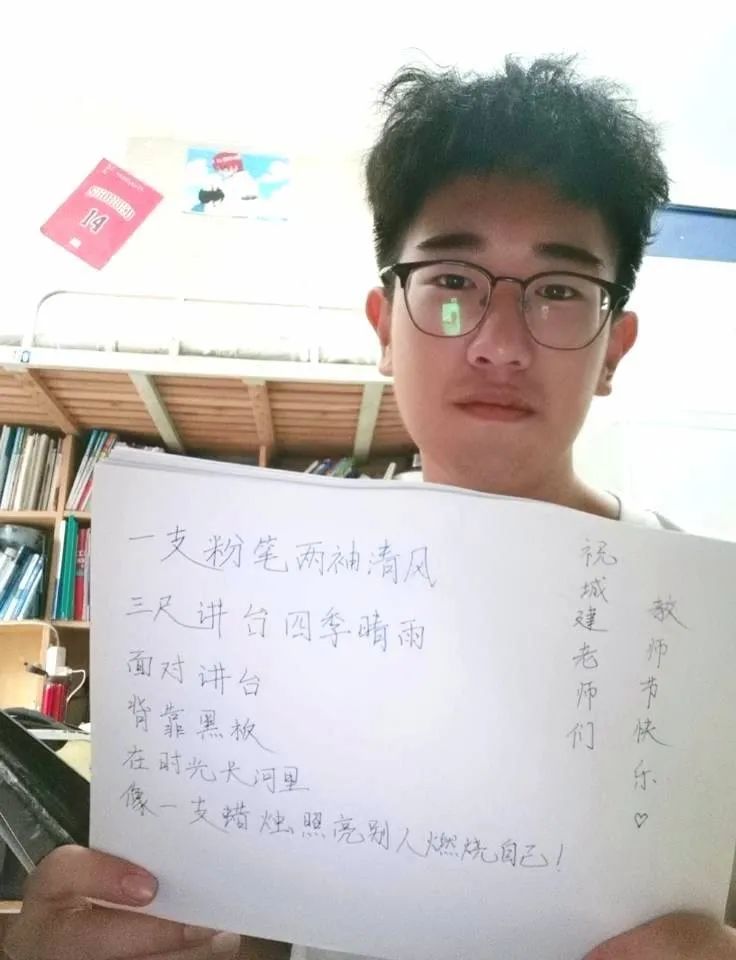 一支粉笔两袖清风
三尺讲台四季晴雨
面对讲台
背靠黑板
在时光大河里
像一支蜡烛照亮别人燃烧自己!
祝城建老师们
教师节快乐♡
SHOHOKU
14